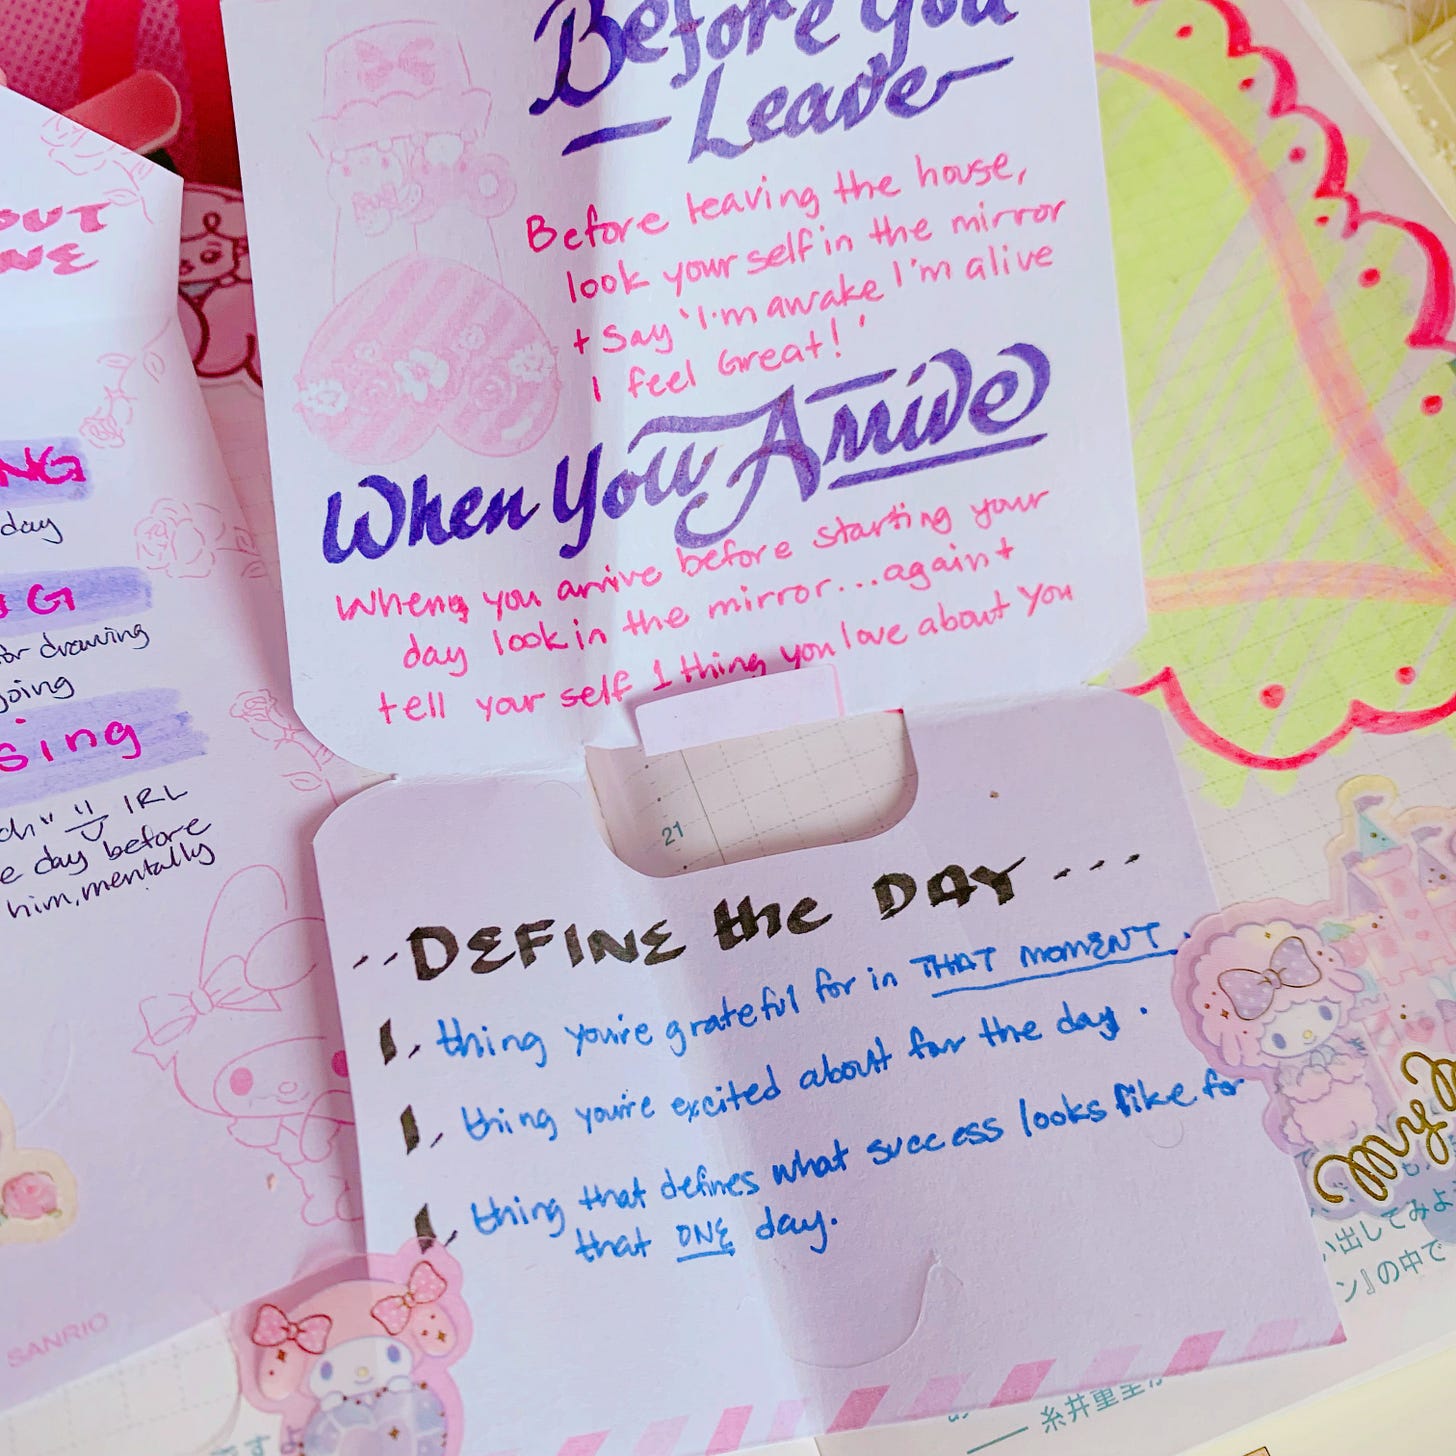 Before You
Leave
Before leaving the house,
look your self in the mirror
+ Say 'I'm awake I'm alive
I feel Great!'
When You Arrive
When you arrive before starting your
day look in the mirror...again +
tell your self 1 thing you love about you
21
--DEFINE the DAY---
1, thing you're grateful for in THAT MOMENT.
1, thing you're excited about for the day.
1, thing that defines what success looks like for
that ONE day.
OUT
NG
day
G
for drawing
going
sing
IRL
day before
him, mentally
SANRIO
My
い出してみよ
ン』の中で
糸井重里